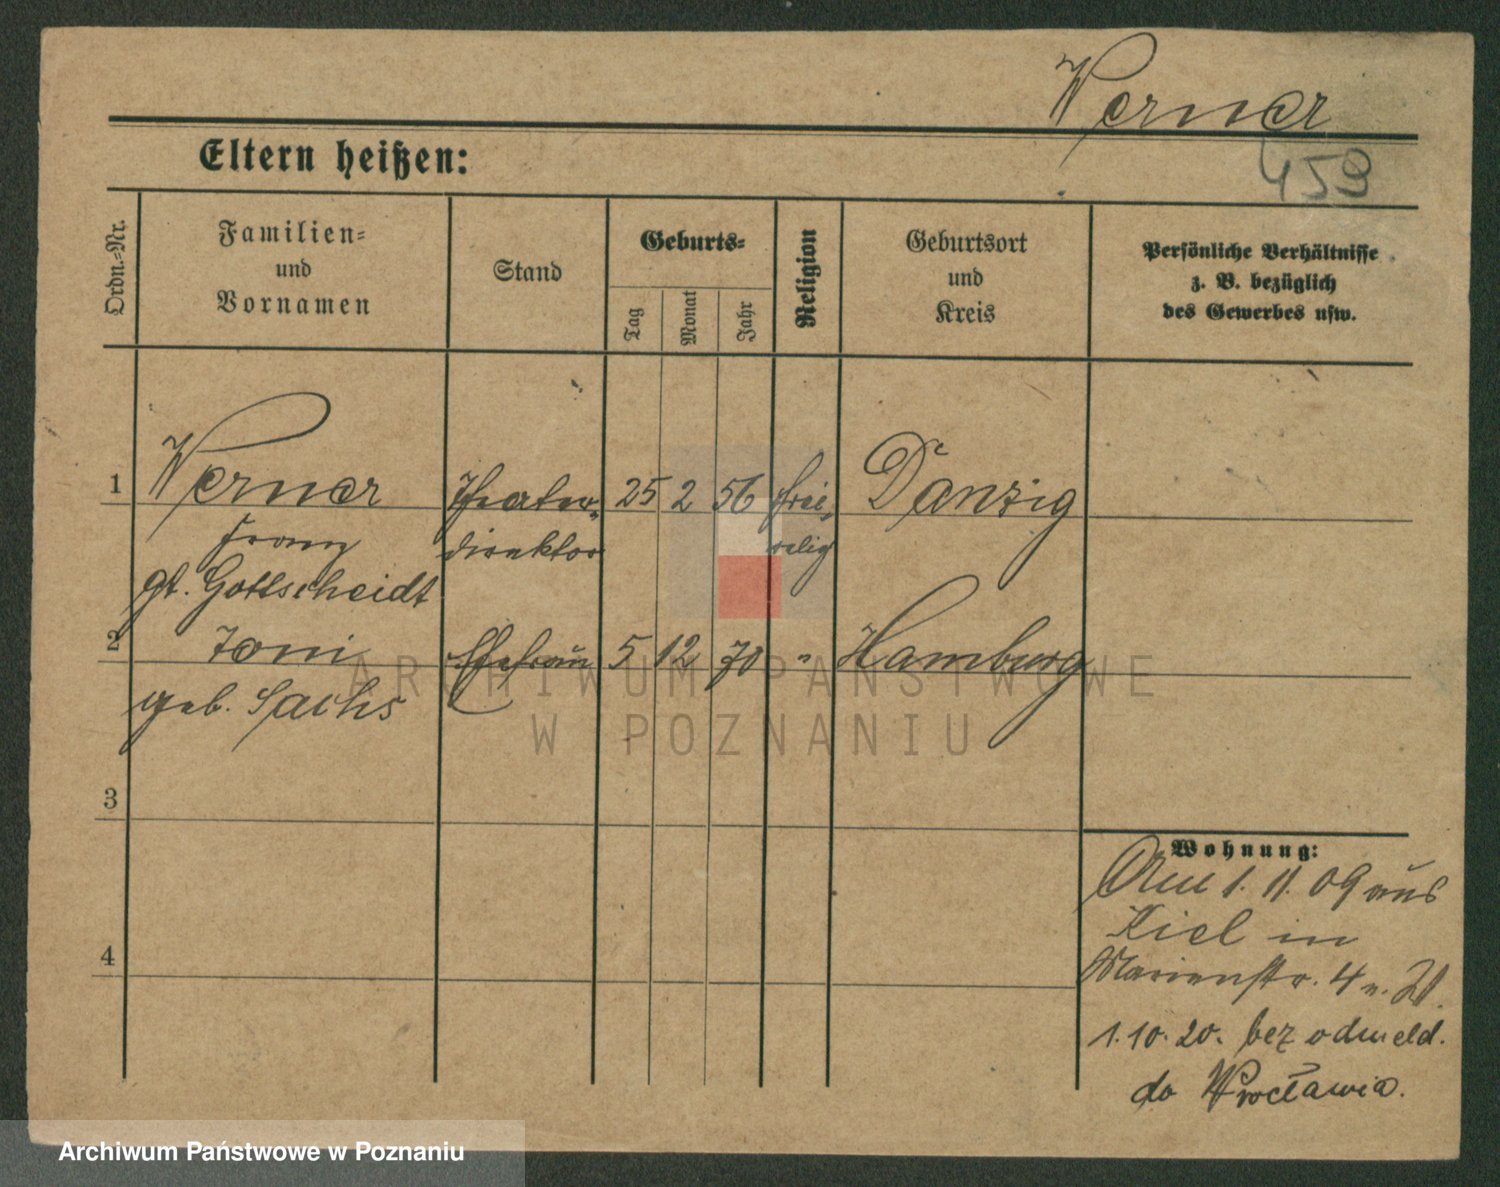 Werner
459
Eltern heißen:
Ordn.-Nr.
Familien-
und
Vornamen
Stand
Geburts-
Tag
Monat
Jahr
Religion
Geburtsort
und
Kreis
Persönliche Verhältnisse
z. B. bezüglich
des Gewerbes usw.
1 Werner Theater- 25 2 56 frei- Danzig
Franz direktor relig
gt. Gottscheidt
2 Toni Ehefrau 5 12 70 " Hamburg
geb. Sachs
3
4
Wohnung:
Am 1. 11. 09 aus
Kiel in
Marienstr. 4
1.10.20. bez odmeld.
do Wrocławia.
ARCHIWUM PAŃSTWOWE
W POZNANIU
Archiwum Państwowe w Poznaniu